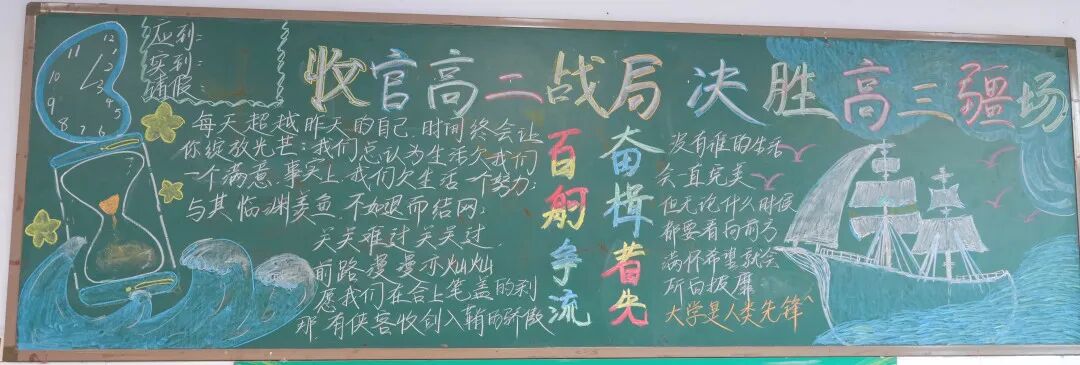 12
11
1
10
2
9
3
4
8
5
7
6
应到:
实到:
请假:
收官高二战局 决胜高三疆场
每天超越昨天的自己,时间终会让
你绽放光芒;我们总认为生活欠我们
一个满意,事实上,我们欠生活一个努力;
与其临渊羡鱼,不如退而结网;
关关难过关关过,
前路漫漫亦灿灿
愿我们在合上笔盖的刹
那,有侠客收剑入鞘的骄傲
百舸争流
奋楫者先
没有谁的生活
会一直完美
但无论什么时候
都要看向前方
满怀希望就会
所向披靡
大学是人类先锋